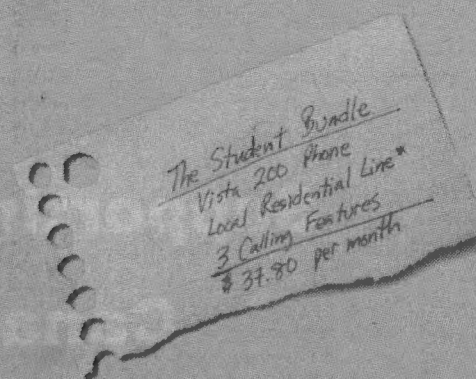 The Student Bundle
Vista 200 Phone
Local Residential Line*
3 Calling Features
$37.80 per month